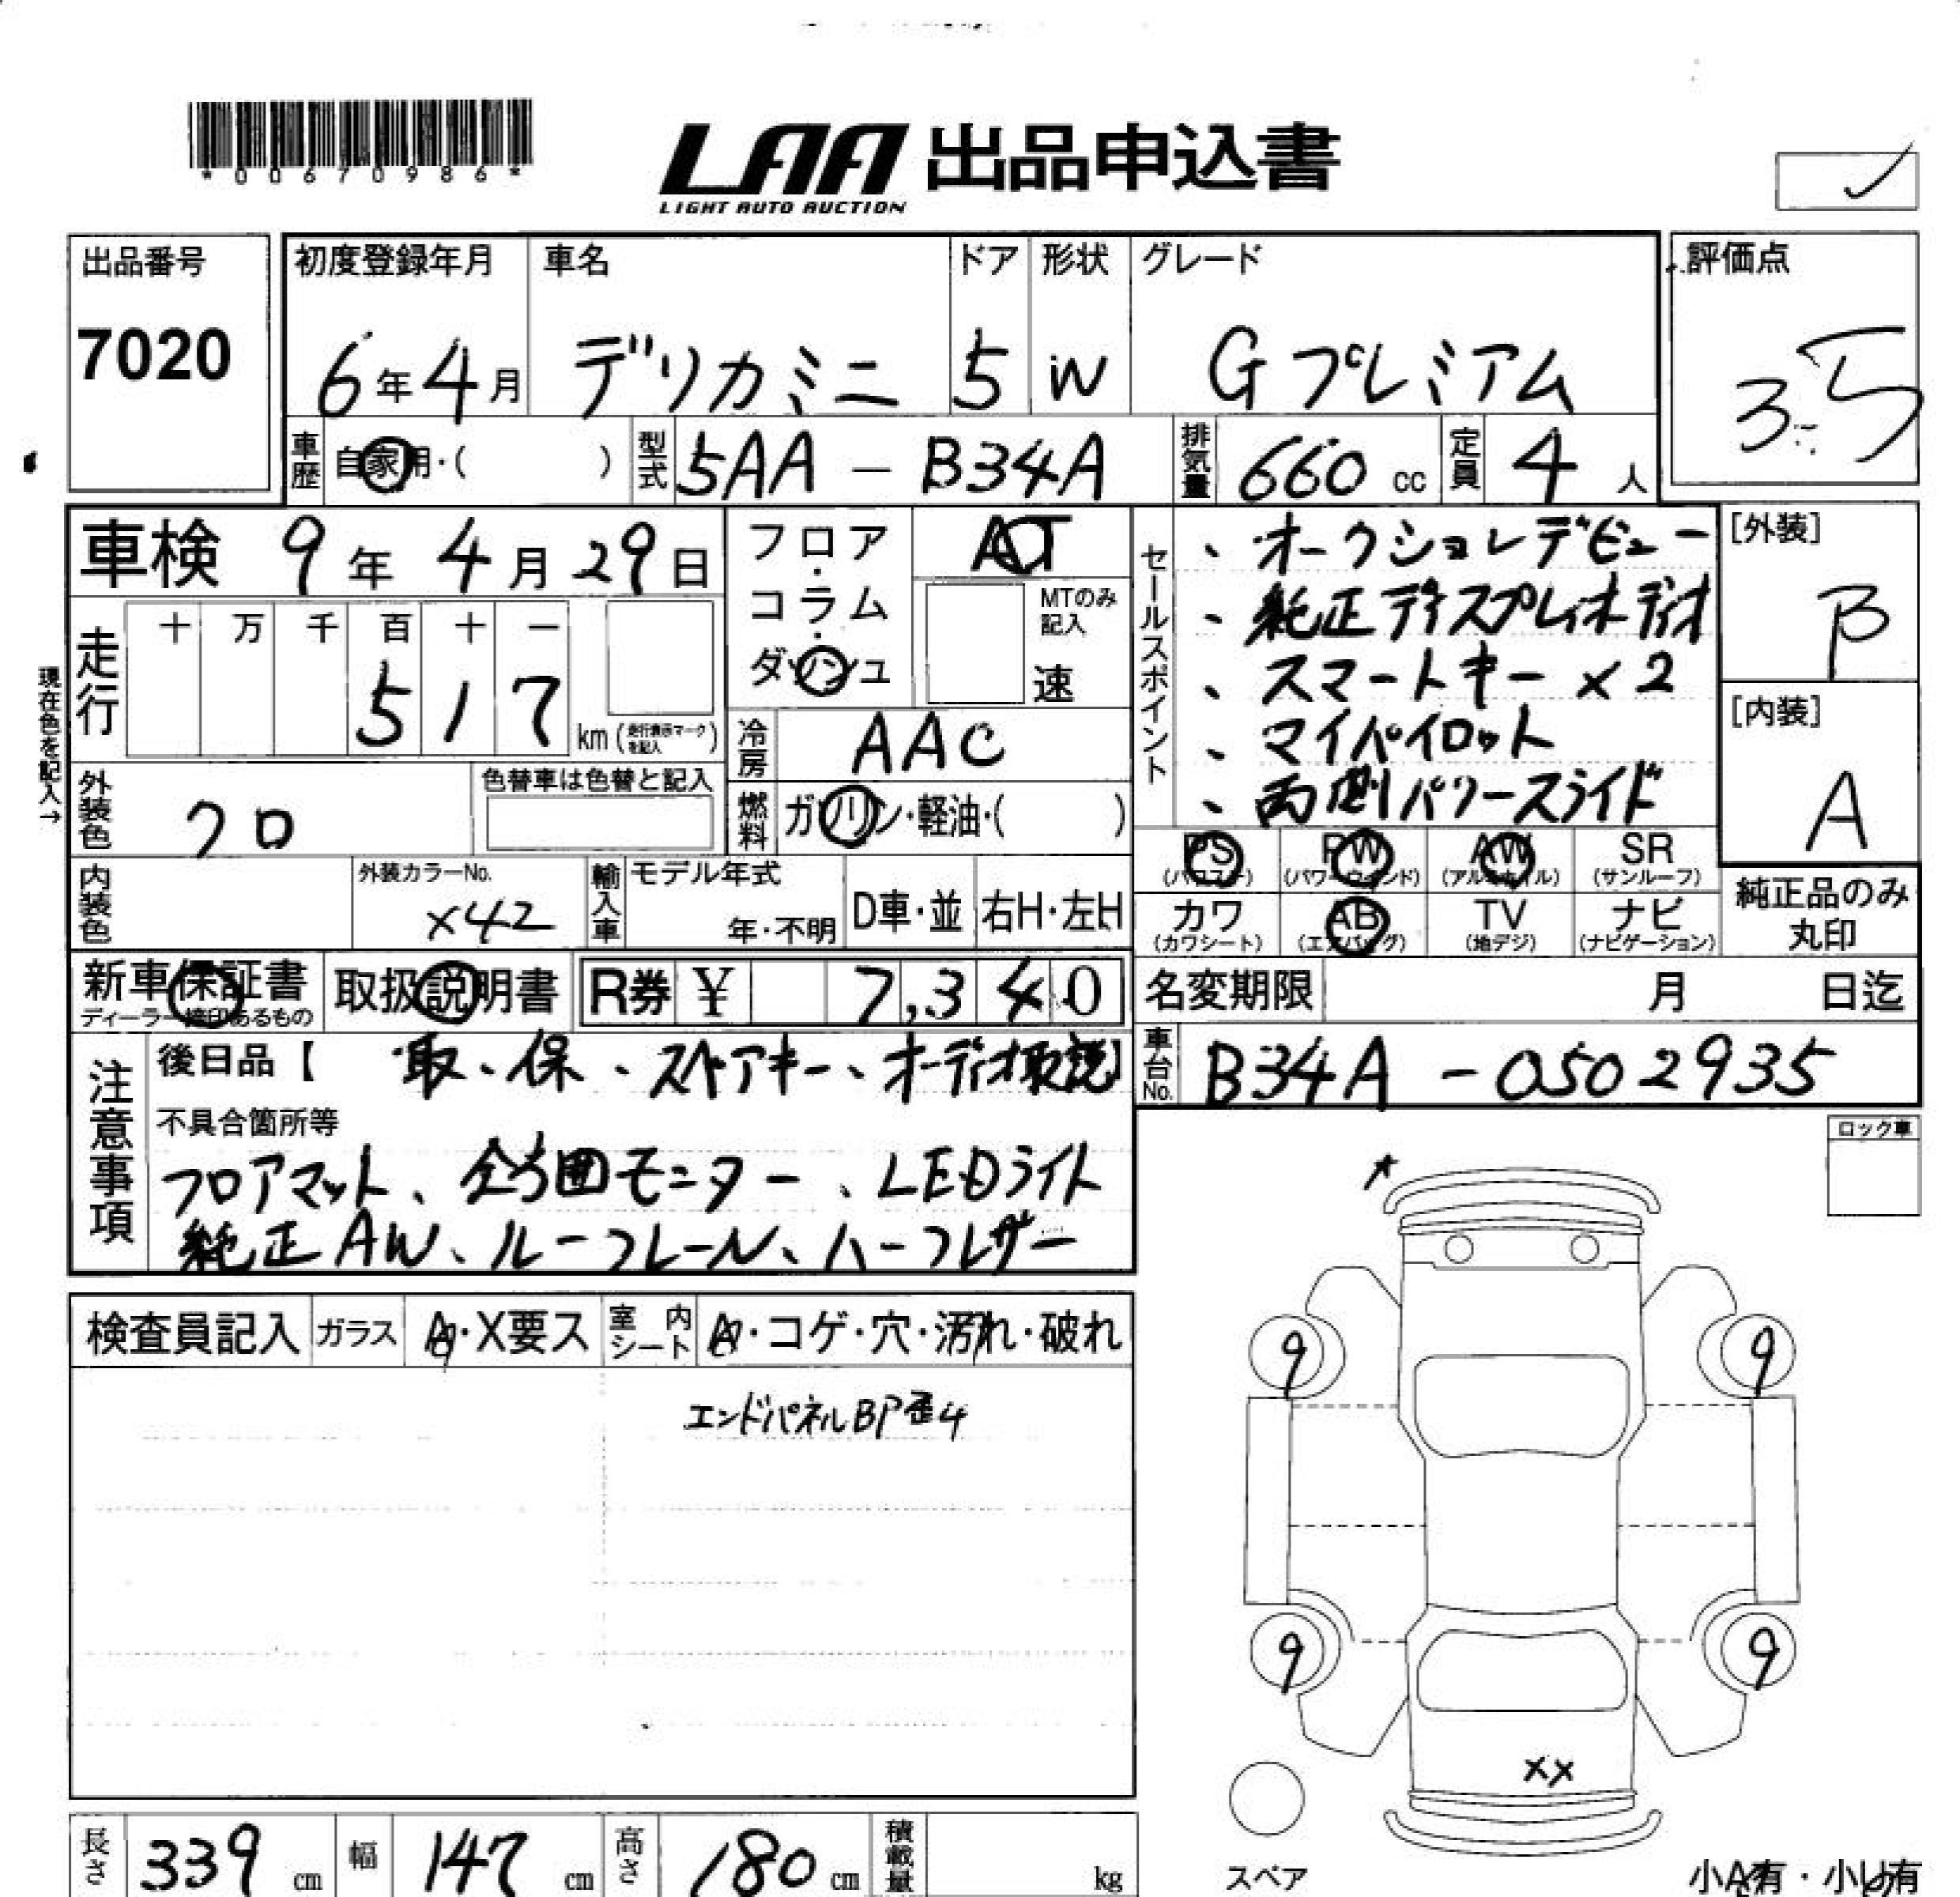 *00670986*
LAA 出品申込書
LIGHT AUTO AUCTION
出品番号
7020
初度登録年月 車名 ドア 形状 グレード
6年4月 デリカミニ 5 W Gプレミアム
評価点
3.5
車歴 自家用・( ) 型式 5AA - B34A 排気量 660 cc 定員 4 人
車検 9年 4月 29日
走行 十 万 千 百 十 一
517 km (走行表示マークを記入)
現在色を記入→
外装色 クロ
色替車は色替と記入
内装色
外装カラーNo.
X42
輸入車 モデル年式
年・不明 D車・並 右H・左H
フロア・コラム・ダッシュ
AT
MTのみ記入
速
冷房 AAC
燃料 ガソリン・軽油・( )
セールスポイント
、オークションデビュー
、純正ディスプレイオーディオ
、スマートキー×2
、マイパイロット
、両側パワースライド
[外装]
B
[内装]
A
PS (パワステ) PW (パワーウィンド) AW (アルミホイル) SR (サンルーフ)
カワ (カワシート) AB (エアバッグ) TV (地デジ) ナビ (ナビゲーション)
純正品のみ丸印
新車保証書 ディーラー捺印あるもの
取扱説明書
R券 ¥ 7,340
名変期限 月 日迄
車台No. B34A-0502935
注意事項
後日品【 取、保、スペアキー、オーディオ取説】
不具合箇所等
フロアマット、全方囲モニター、LEDライト
純正AW、ルーフレール、ハーフレザー
検査員記入 ガラス A・X要ス 室内シート A・コゲ・穴・汚れ・破れ
エンドパネルBP歪4
ロック車
9 9
9 9
XX
スペア
小A有・小U有
長さ 339 cm 幅 147 cm 高さ 180 cm 積載量 kg